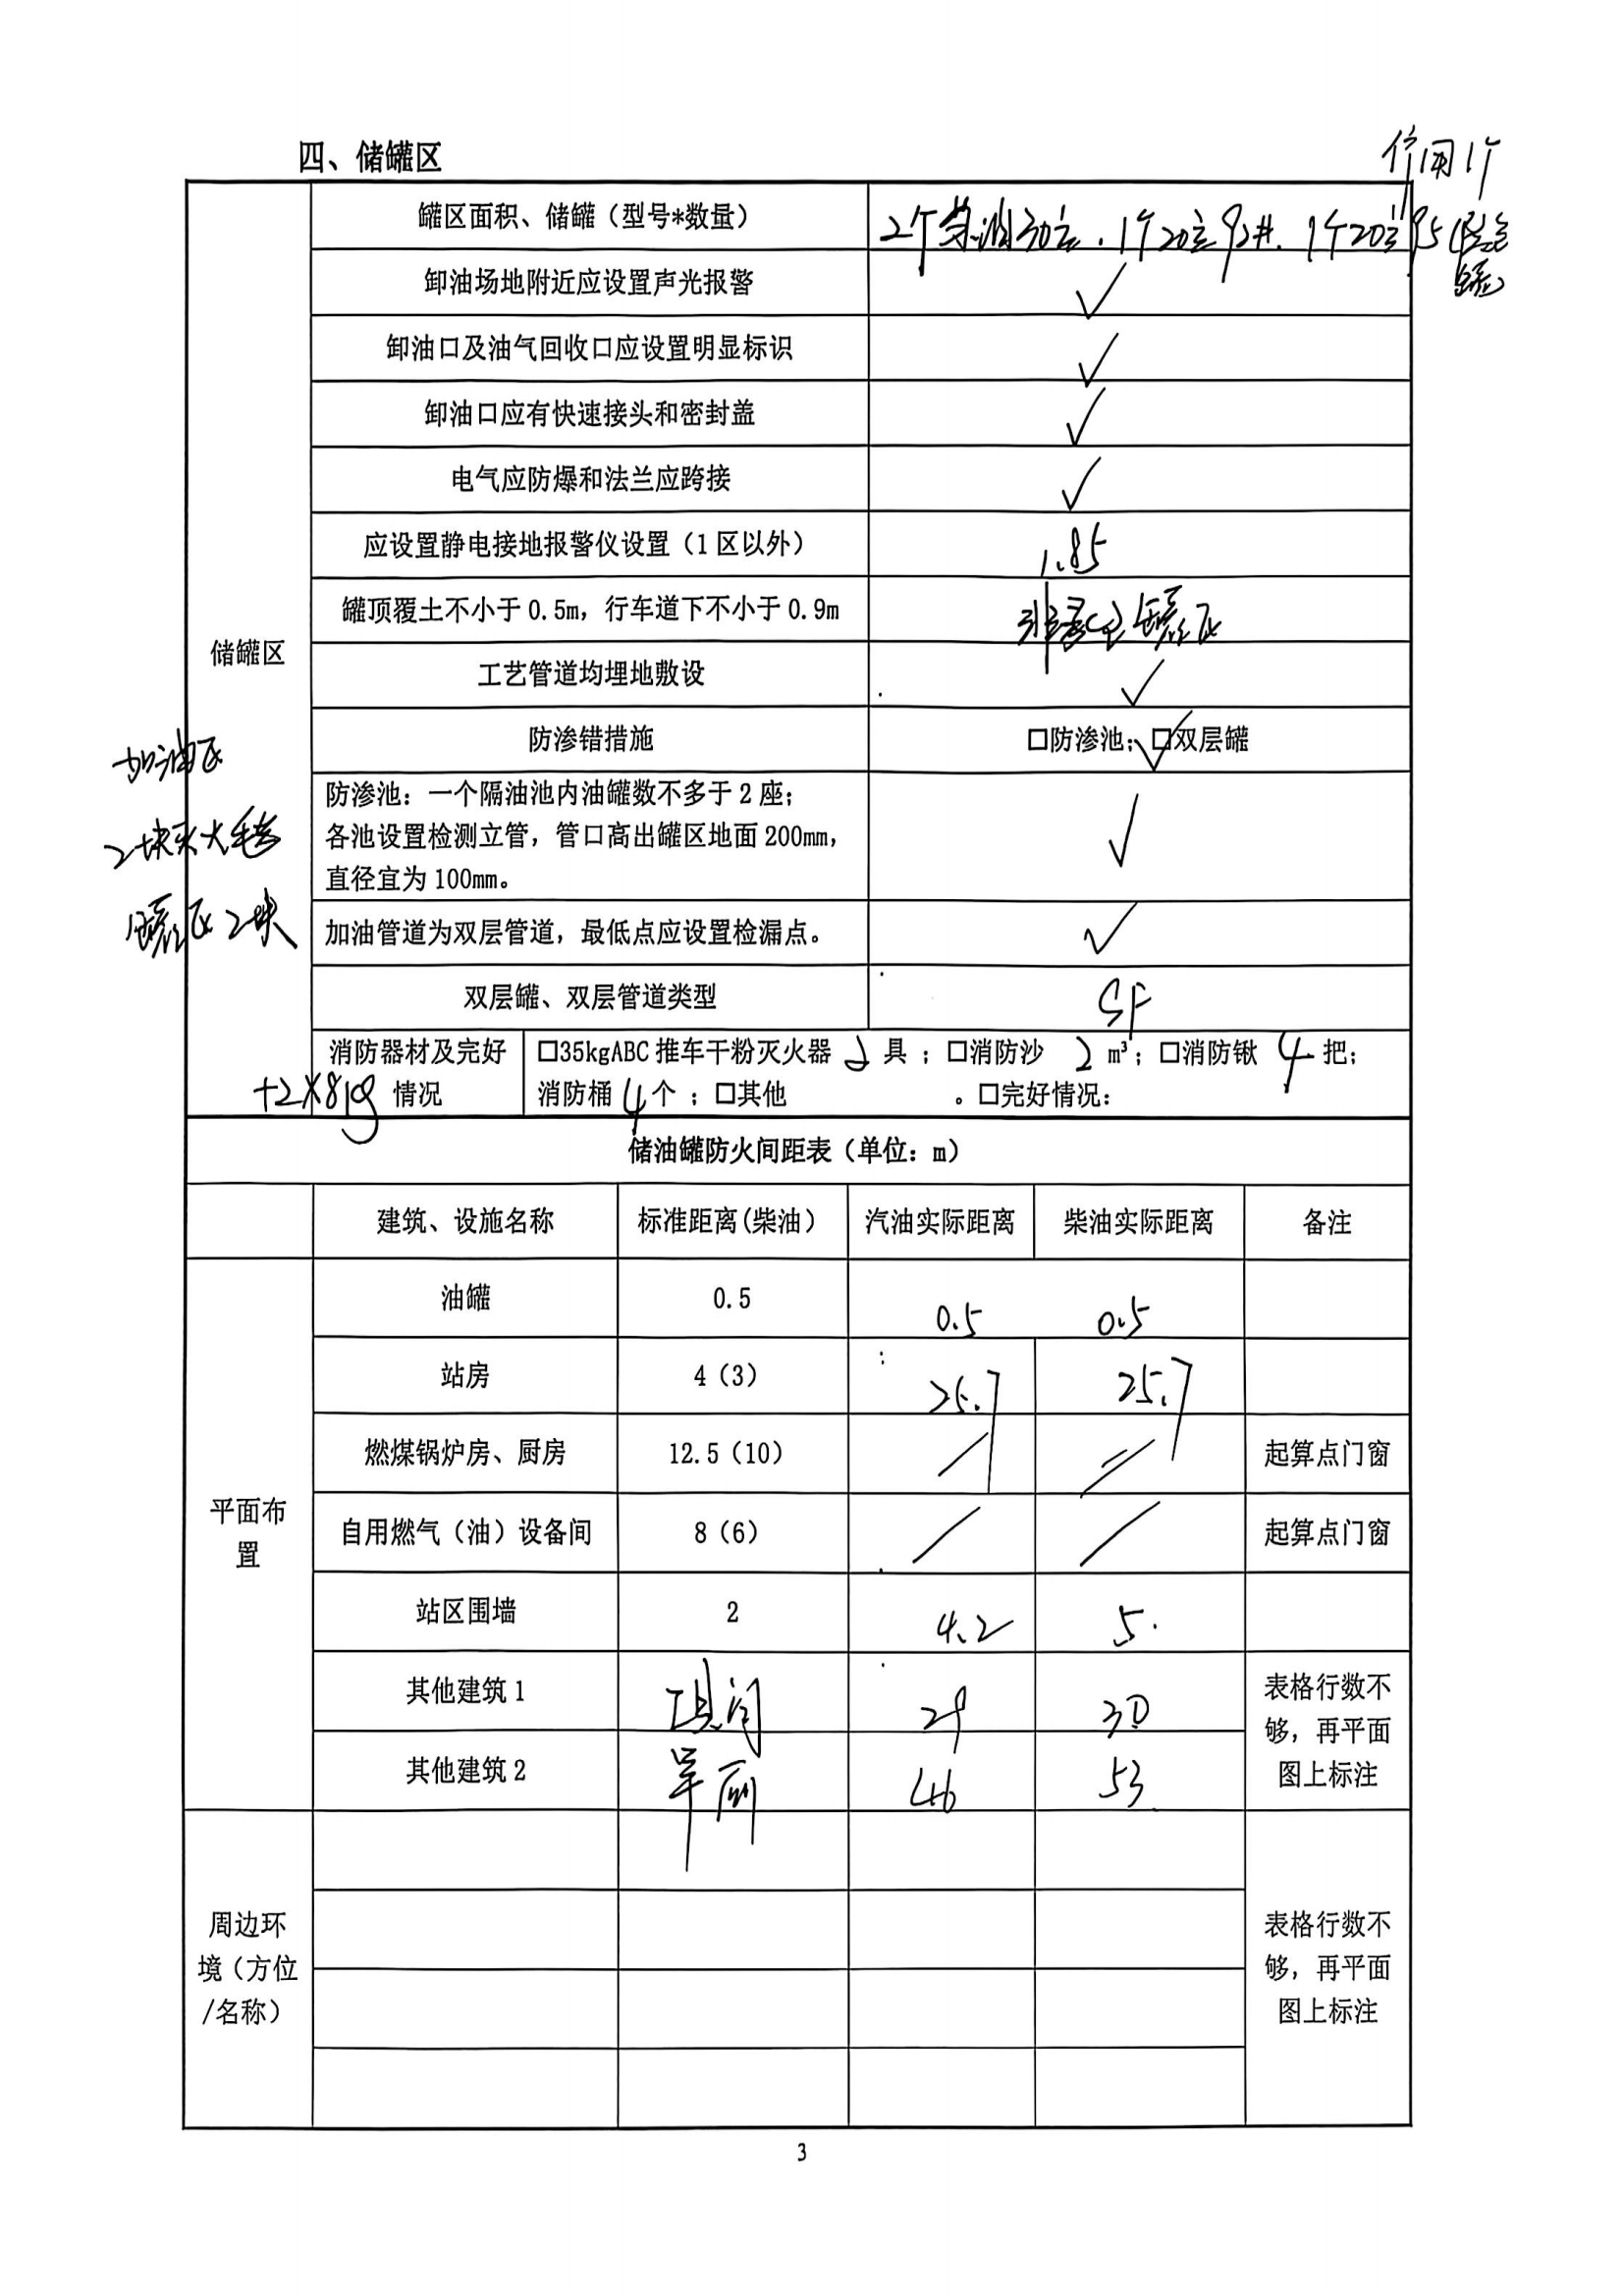 四、储罐区
停用1个
罐区面积、储罐（型号*数量） 2个柴油30立.1个20立92#.1个20立95(隔仓罐)
卸油场地附近应设置声光报警 ✓
卸油口及油气回收口应设置明显标识 ✓
卸油口应有快速接头和密封盖 ✓
电气应防爆和法兰应跨接 ✓
应设置静电接地报警仪设置（1区以外） 1.85
罐顶覆土不小于0.5m，行车道下不小于0.9m 非承重罐区
储罐区
工艺管道均埋地敷设 ✓
防渗错措施 □防渗池；□双层罐 ✓
加油区
2块灭火毯
罐区2块
防渗池：一个隔油池内油罐数不多于2座；
各池设置检测立管，管口高出罐区地面200mm，
直径宜为100mm。 ✓
加油管道为双层管道，最低点应设置检漏点。 ✓
双层罐、双层管道类型 SF
消防器材及完好情况 □35kgABC推车干粉灭火器 2 具；□消防沙 2 m³；□消防锹 4 把；
消防桶 4 个；□其他 。□完好情况：
+2×8kg
储油罐防火间距表（单位：m）
建筑、设施名称 标准距离(柴油） 汽油实际距离 柴油实际距离 备注
平面布置
油罐 0.5 0.5 0.5
站房 4（3） 25.7 25.7
燃煤锅炉房、厨房 12.5（10） / / 起算点门窗
自用燃气（油）设备间 8（6） / / 起算点门窗
站区围墙 2 4.2 5.
其他建筑1 工具间 29 30
其他建筑2 旱厕 46 53
表格行数不够，再平面图上标注
周边环境（方位/名称）
表格行数不够，再平面图上标注
3